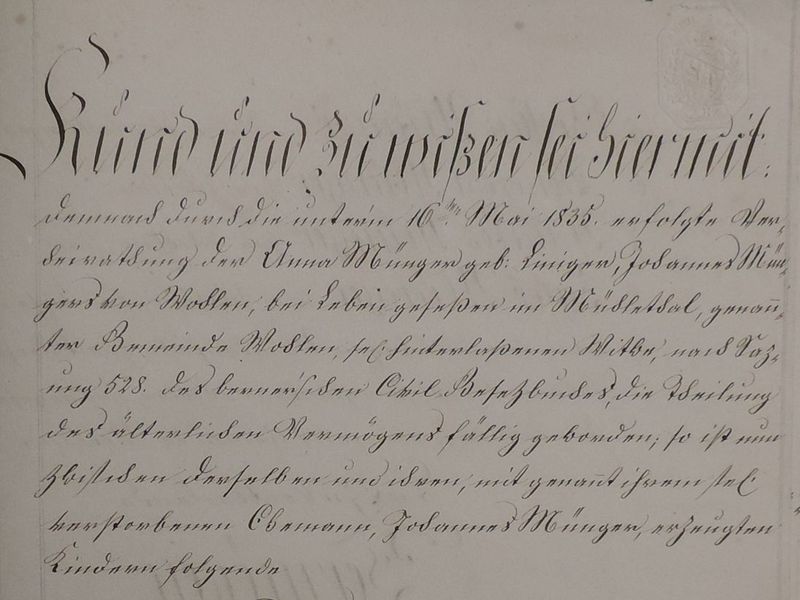 Kund und zu wißen sei hiermit:
demnach durch die unterm 16.ten Mai 1835. erfolgte Ver-
heirathung der Anna Münger geb: Liniger, Johannes Mün-
gers von Wohlen, bei Leben geseßen im Mühlethal, genann-
ter Gemeinde Wohlen, sel. hinterlaßenen Witwe, nach Saz-
ung 528. des berner'schen Civil Gesetzbuches, die Theilung
des älterlichen Vermögens fällig geworden; so ist nun
zwischen derselben und ihren, mit genannt ihrem sel.
verstorbenen Ehemann, Johannes Münger, erzeugten
Kindern folgende